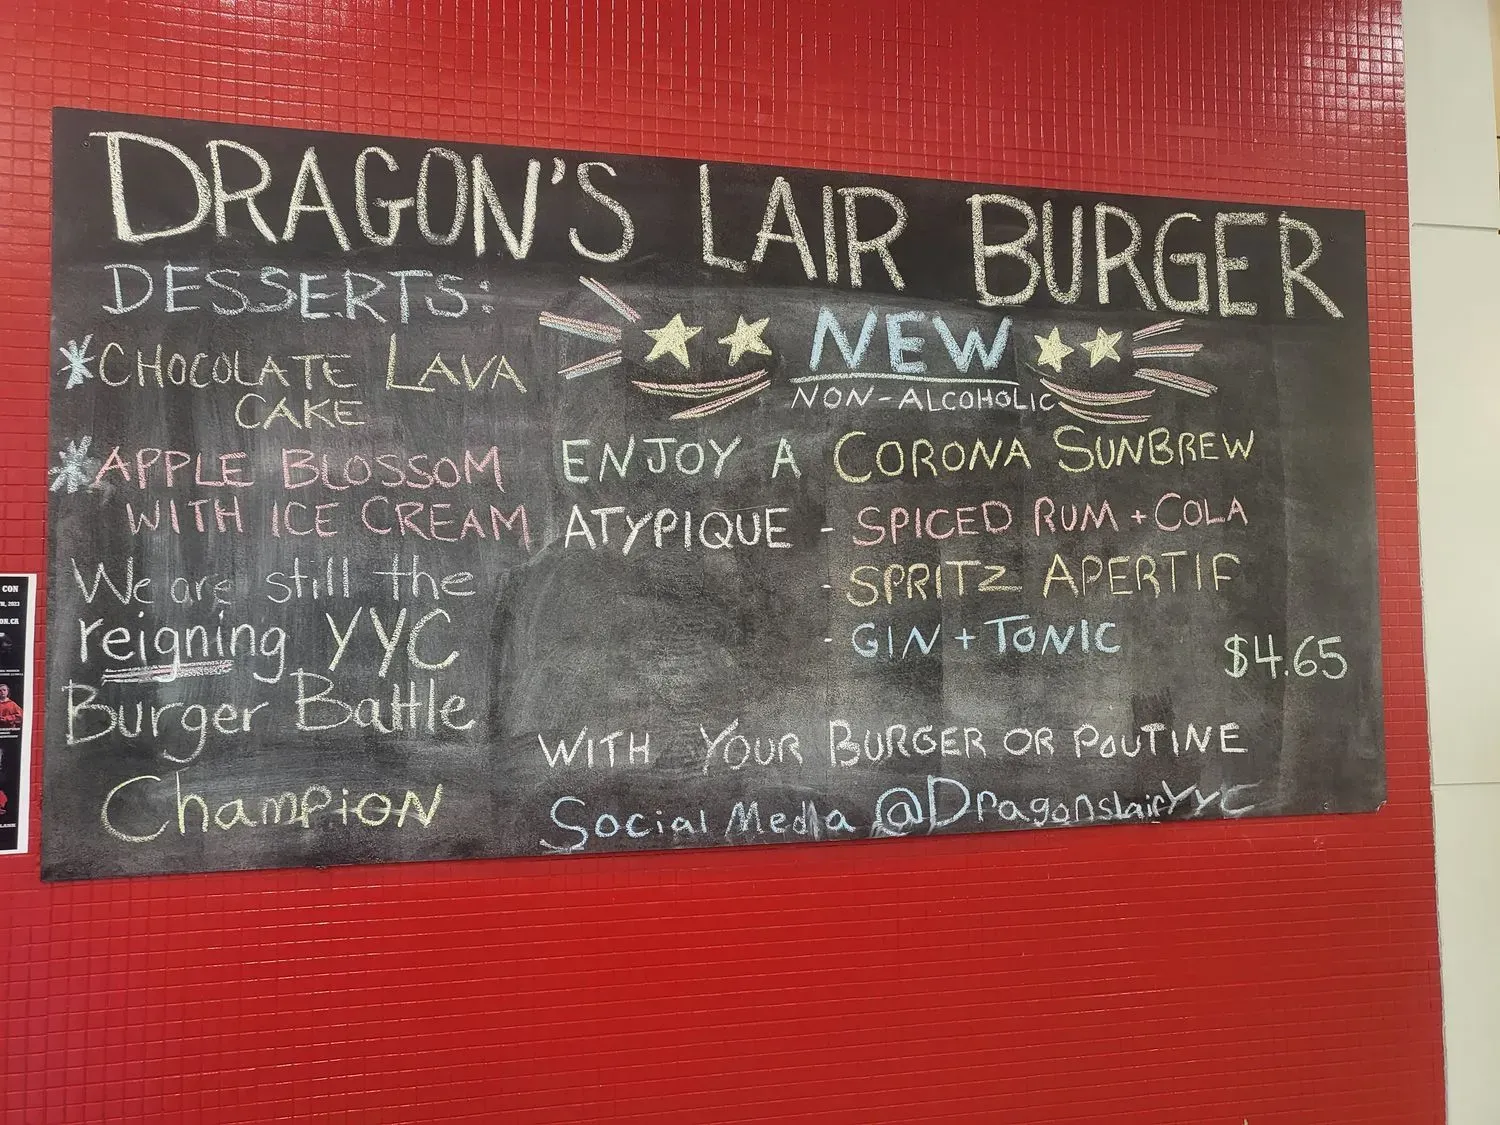 DRAGON'S LAIR BURGER
DESSERTS:
*CHOCOLATE LAVA
CAKE
*APPLE BLOSSOM
WITH ICE CREAM
We are still the
reigning YYC
Burger Battle
Champion
NEW
NON-ALCOHOLIC
ENJOY A CORONA SUNBREW
ATYPIQUE - SPICED RUM + COLA
- SPRITZ APERTIF
- GIN + TONIC
$4.65
WITH YOUR BURGER OR POUTINE
Social Media @DragonslairYYC
CON
, 2023
ON.CA